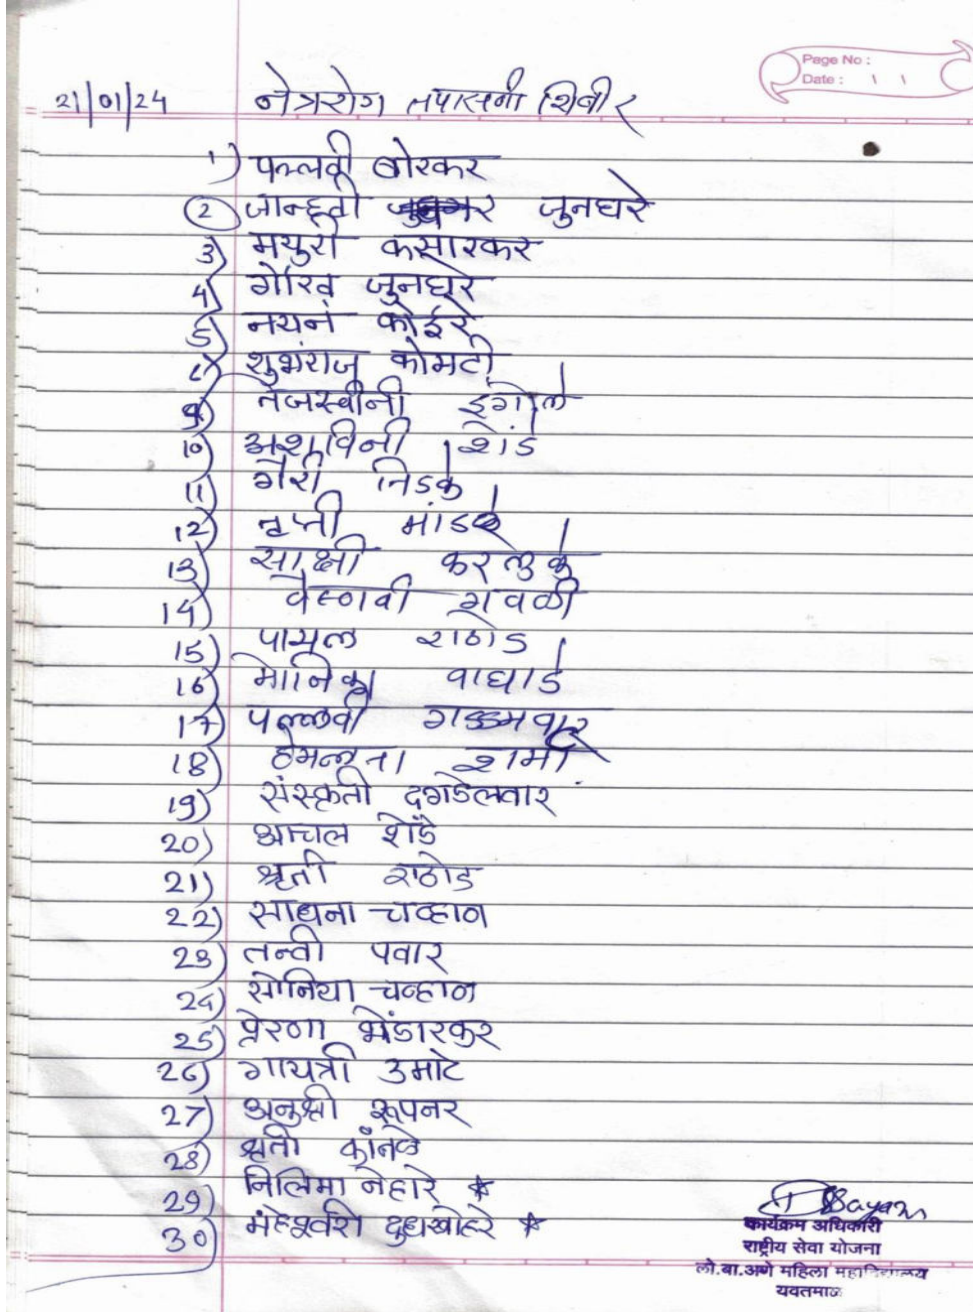 Page No :
Date : \ \
21/01/24 नेत्ररोग तपासनी शिबीर
1) पल्लवी बोरकर
2) जान्हवी जुनघरे
3) मयुरी कसारकर
4) गौरव जुनघरे
5) नयन कोईरे
6) शुभंराज कोमटी
9) तेजस्वीनी इंगोले
10) अश्विनी शेंडे
11) गौरी तिडके
12) तृप्ती मांडळे
13) साक्षी करलुके
14) वैष्णवी गवळी
15) पायल राठोड
16) मोनिका वाघाडे
17) पल्लवी गड्डमवार
18) हेमलता शर्मा
19) संस्कृती दगडेलवार
20) आचल शेंडे
21) श्रृती राठोड
22) साधना चव्हाण
23) तन्वी पवार
24) सोनिया चव्हाण
25) प्रेरणा भेंडारकर
26) गायत्री उमाटे
27) अनुश्री रूपनर
28) श्रृती
29) निलिमा नेहारे ☆
30) महेश्वरी दुधखोहरे ☆
कार्यक्रम अधिकारी
राष्ट्रीय सेवा योजना
लो.बा.अणे महिला महाविद्यालय
यवतमाळ